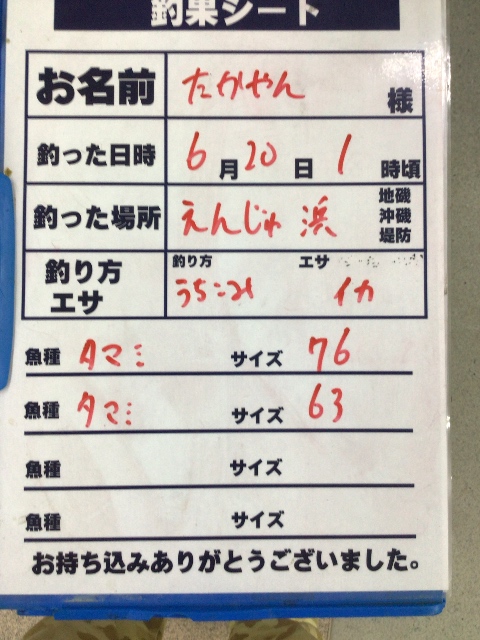 釣果シート
お名前 たかやん 様
釣った日時 6月20日 1時頃
釣った場所 えんじゅ浜 地磯 沖磯 堤防
釣り方 エサ 釣り方 うちこみ エサ イカ
魚種 タマミ サイズ 76
魚種 タマミ サイズ 63
魚種 サイズ
魚種 サイズ
お持ち込みありがとうございました。